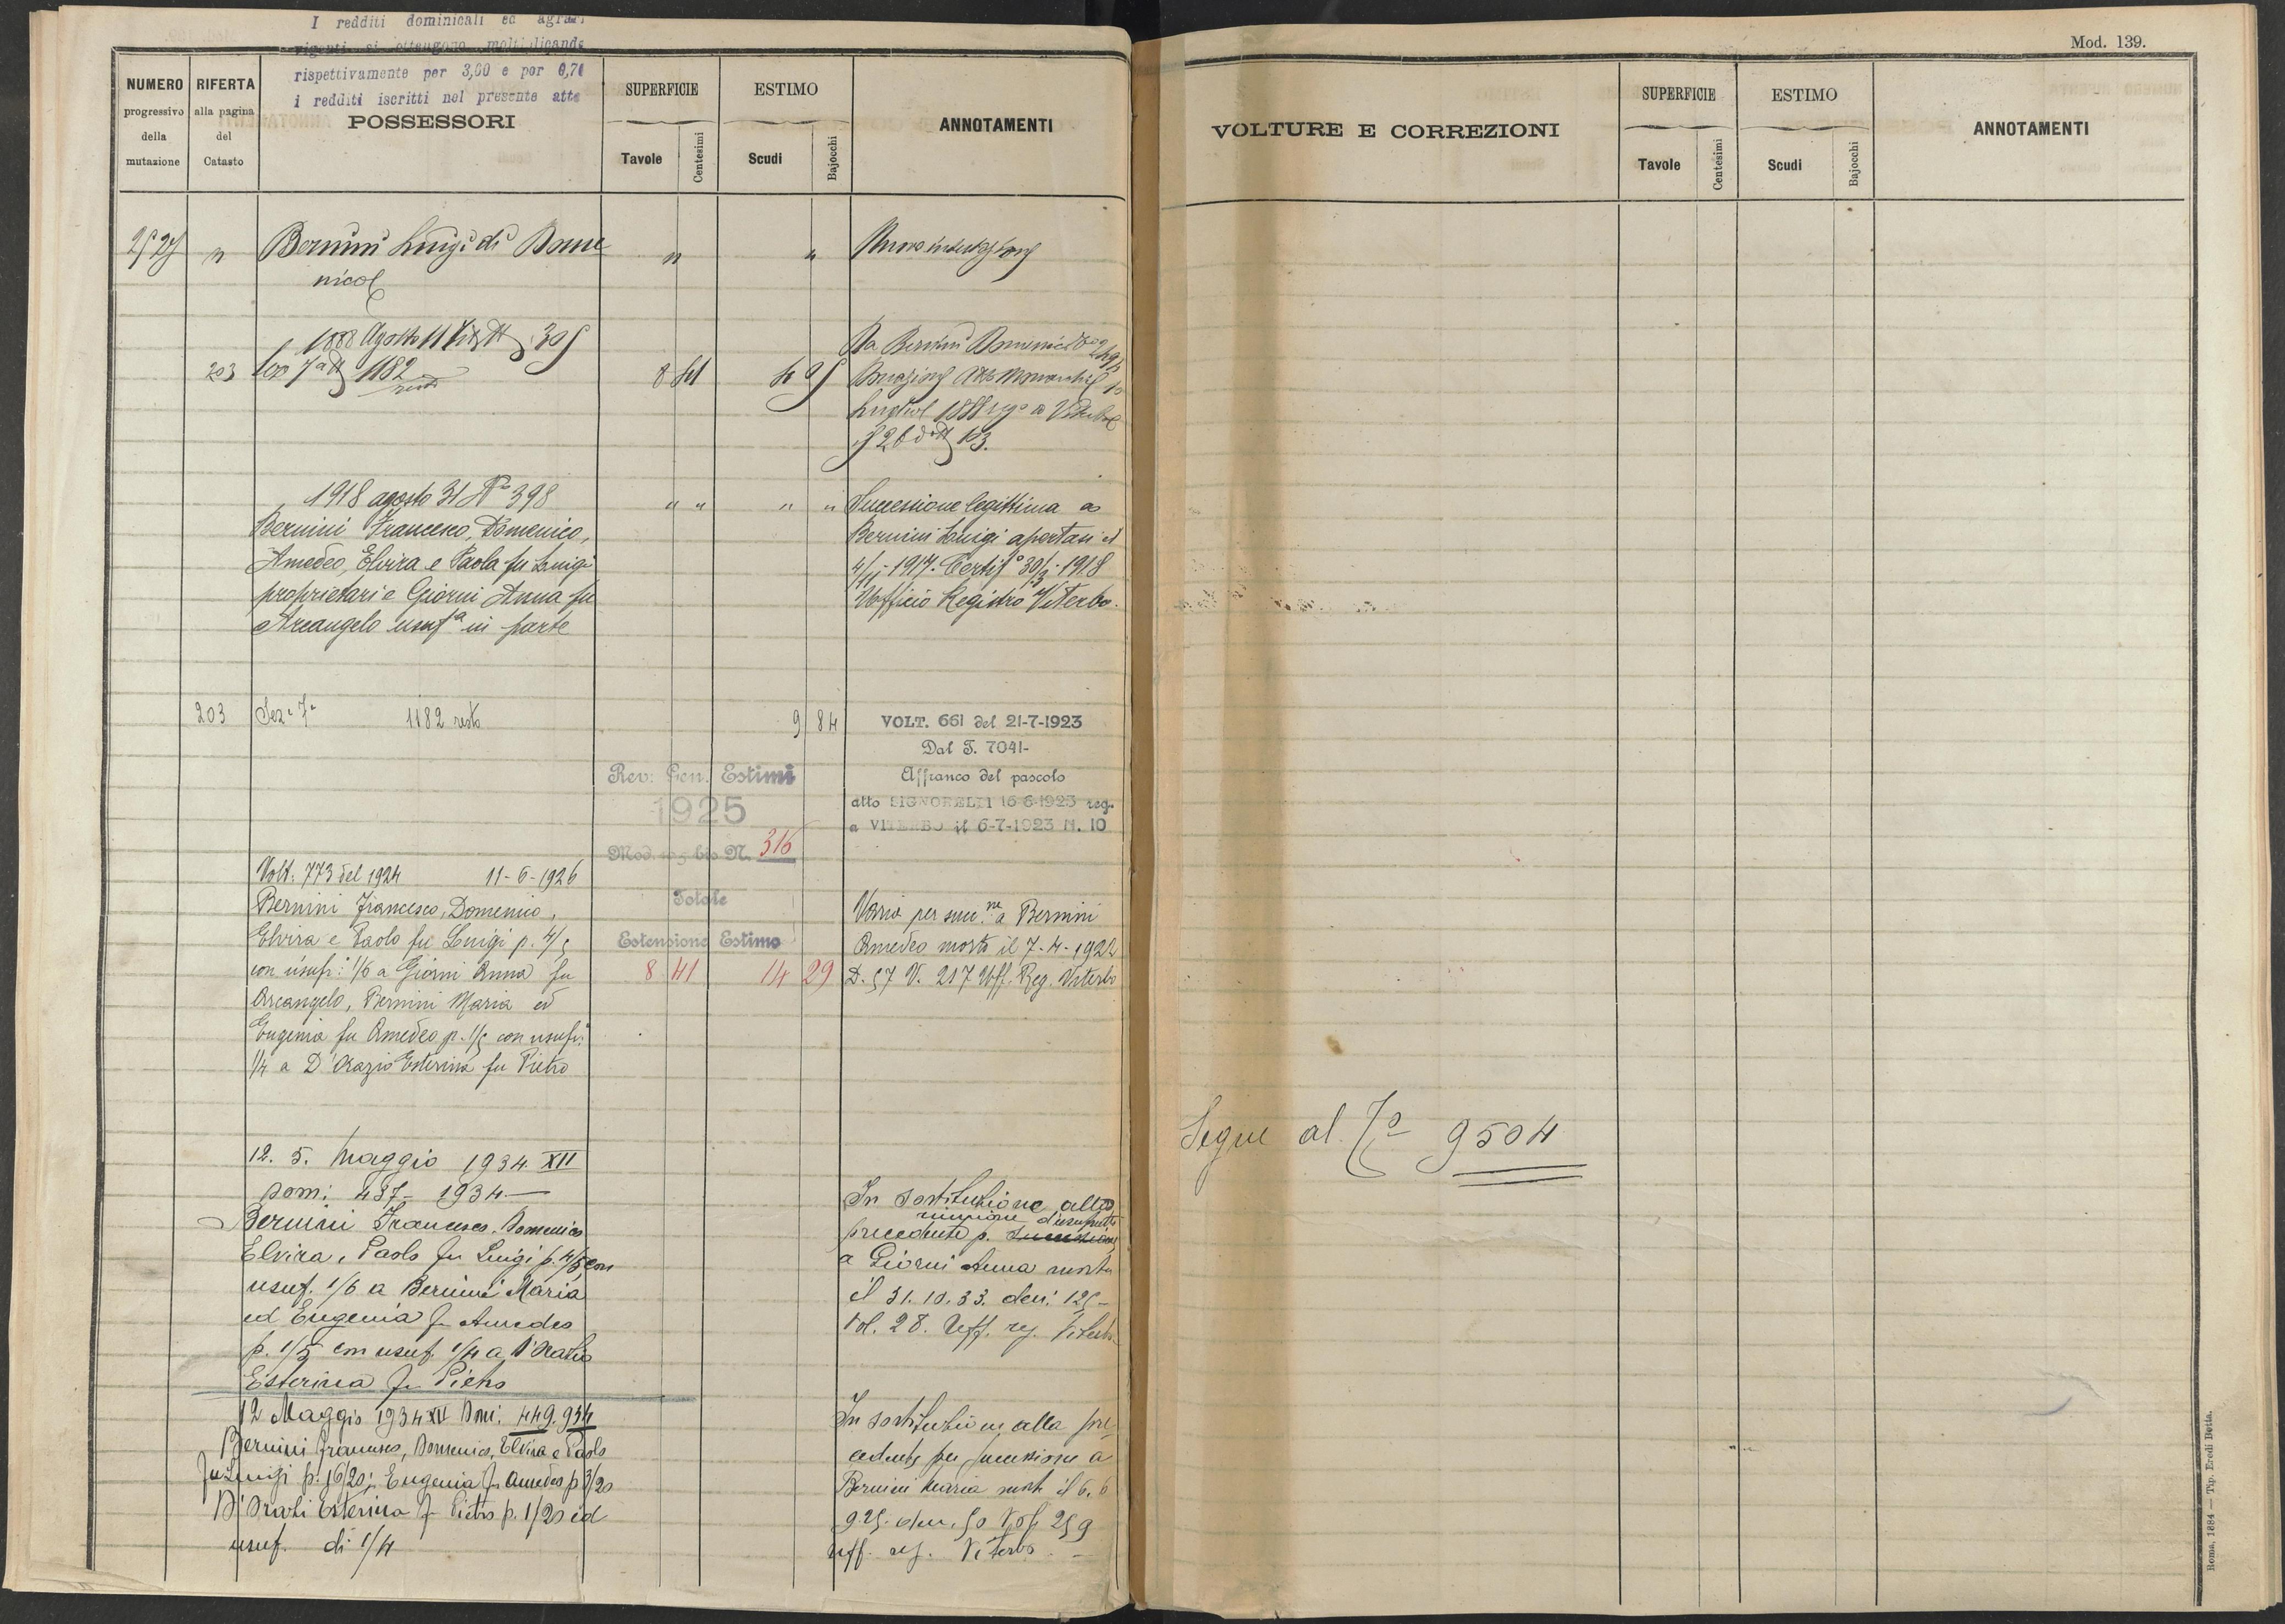 I redditi dominicali ed agrari
vigenti si ottengono moltiplicando
rispettivamente per 3,00 e per 0,70
i redditi iscritti nel presente atto
NUMERO
progressivo
della
mutazione
RIFERTA
alla pagina
del
Catasto
POSSESSORI
SUPERFICIE
Tavole
Centesimi
ESTIMO
Scudi
Bajocchi
ANNOTAMENTI
Bernini Luigi di Dome
nico
"
"
Nuova intestazione
1888 Agosto 11
203
1182
resto
8 41
Da Bernini Domenico
Donazione
1888 a Viterbo
1918 agosto 31 N° 398
Bernini Francesco, Domenico,
Amedeo, Elvira e Paola fu Luigi
proprietari e Giorni Anna fu
Arcangelo usufª in parte
" "
" "
Successione legittima a
Bernini Luigi apertasi il
4/11-1917. Certifº 30/3-1918
Ufficio Registro Viterbo.
203
Sezª 7ª 1182 resto
9 84
VOLT. 661 del 21-7-1923
Dal T. 7041-
Affranco del pascolo
atto SIGNORELLI 16-6-1923 reg.
a VITERBO il 6-7-1923 N. 10
Rev: Gen. Estimi
1925
Mod. 105 bis N. 316
Volt. 773 del 1924 11-6-1926
Bernini Francesco, Domenico,
Elvira e Paolo fu Luigi p. 4/5
con usufr: 1/6 a Giorni Anna fu
Arcangelo, Bernini Maria ed
Eugenia fu Amedeo p. 1/5 con usufr:
1/4 a D'Orazio Esterina fu Pietro
Totale
Estensione Estimo
8 41
14 29
Varia per succ.ne a Bernini
Amedeo morto il 7-4-1922
D. 57 V. 217 Uff. Reg. Viterbo
12. 5. Maggio 1934 XII
Dom: 437- 1934-
Bernini Francesco, Domenico
Elvira, Paolo fu Luigi p. 4/5 con
usuf. 1/6 a Bernini Maria
ed Eugenia fu Amedeo
p. 1/5 con usuf 1/4 a D'Orazio
Esterina fu Pietro
In sostituzione alla
riunione d'usufrutto
precedente p. Successione
a Giorni Anna morta
il 31.10.33. den: 125-
Vol. 28. Uff. reg. Viterbo
12 Maggio 1934 XII Dom: 449.934
Bernini Francesco, Domenico, Elvira e Paolo
fu Luigi p. 16/20; Eugenia fu Amedeo p 3/20
D'Orazi Esterina fu Pietro p. 1/20 ed
usuf. di 1/4
In sostituzione alla pre
cedente per successione a
Bernini Maria morta il 6.6
925. den. 50 Vol 259
Uff. reg. Viterbo.
Mod. 139.
VOLTURE E CORREZIONI
SUPERFICIE
Tavole
Centesimi
ESTIMO
Scudi
Bajocchi
ANNOTAMENTI
Segue al Tº 9504
Roma, 1884 — Tip. Eredi Botta.